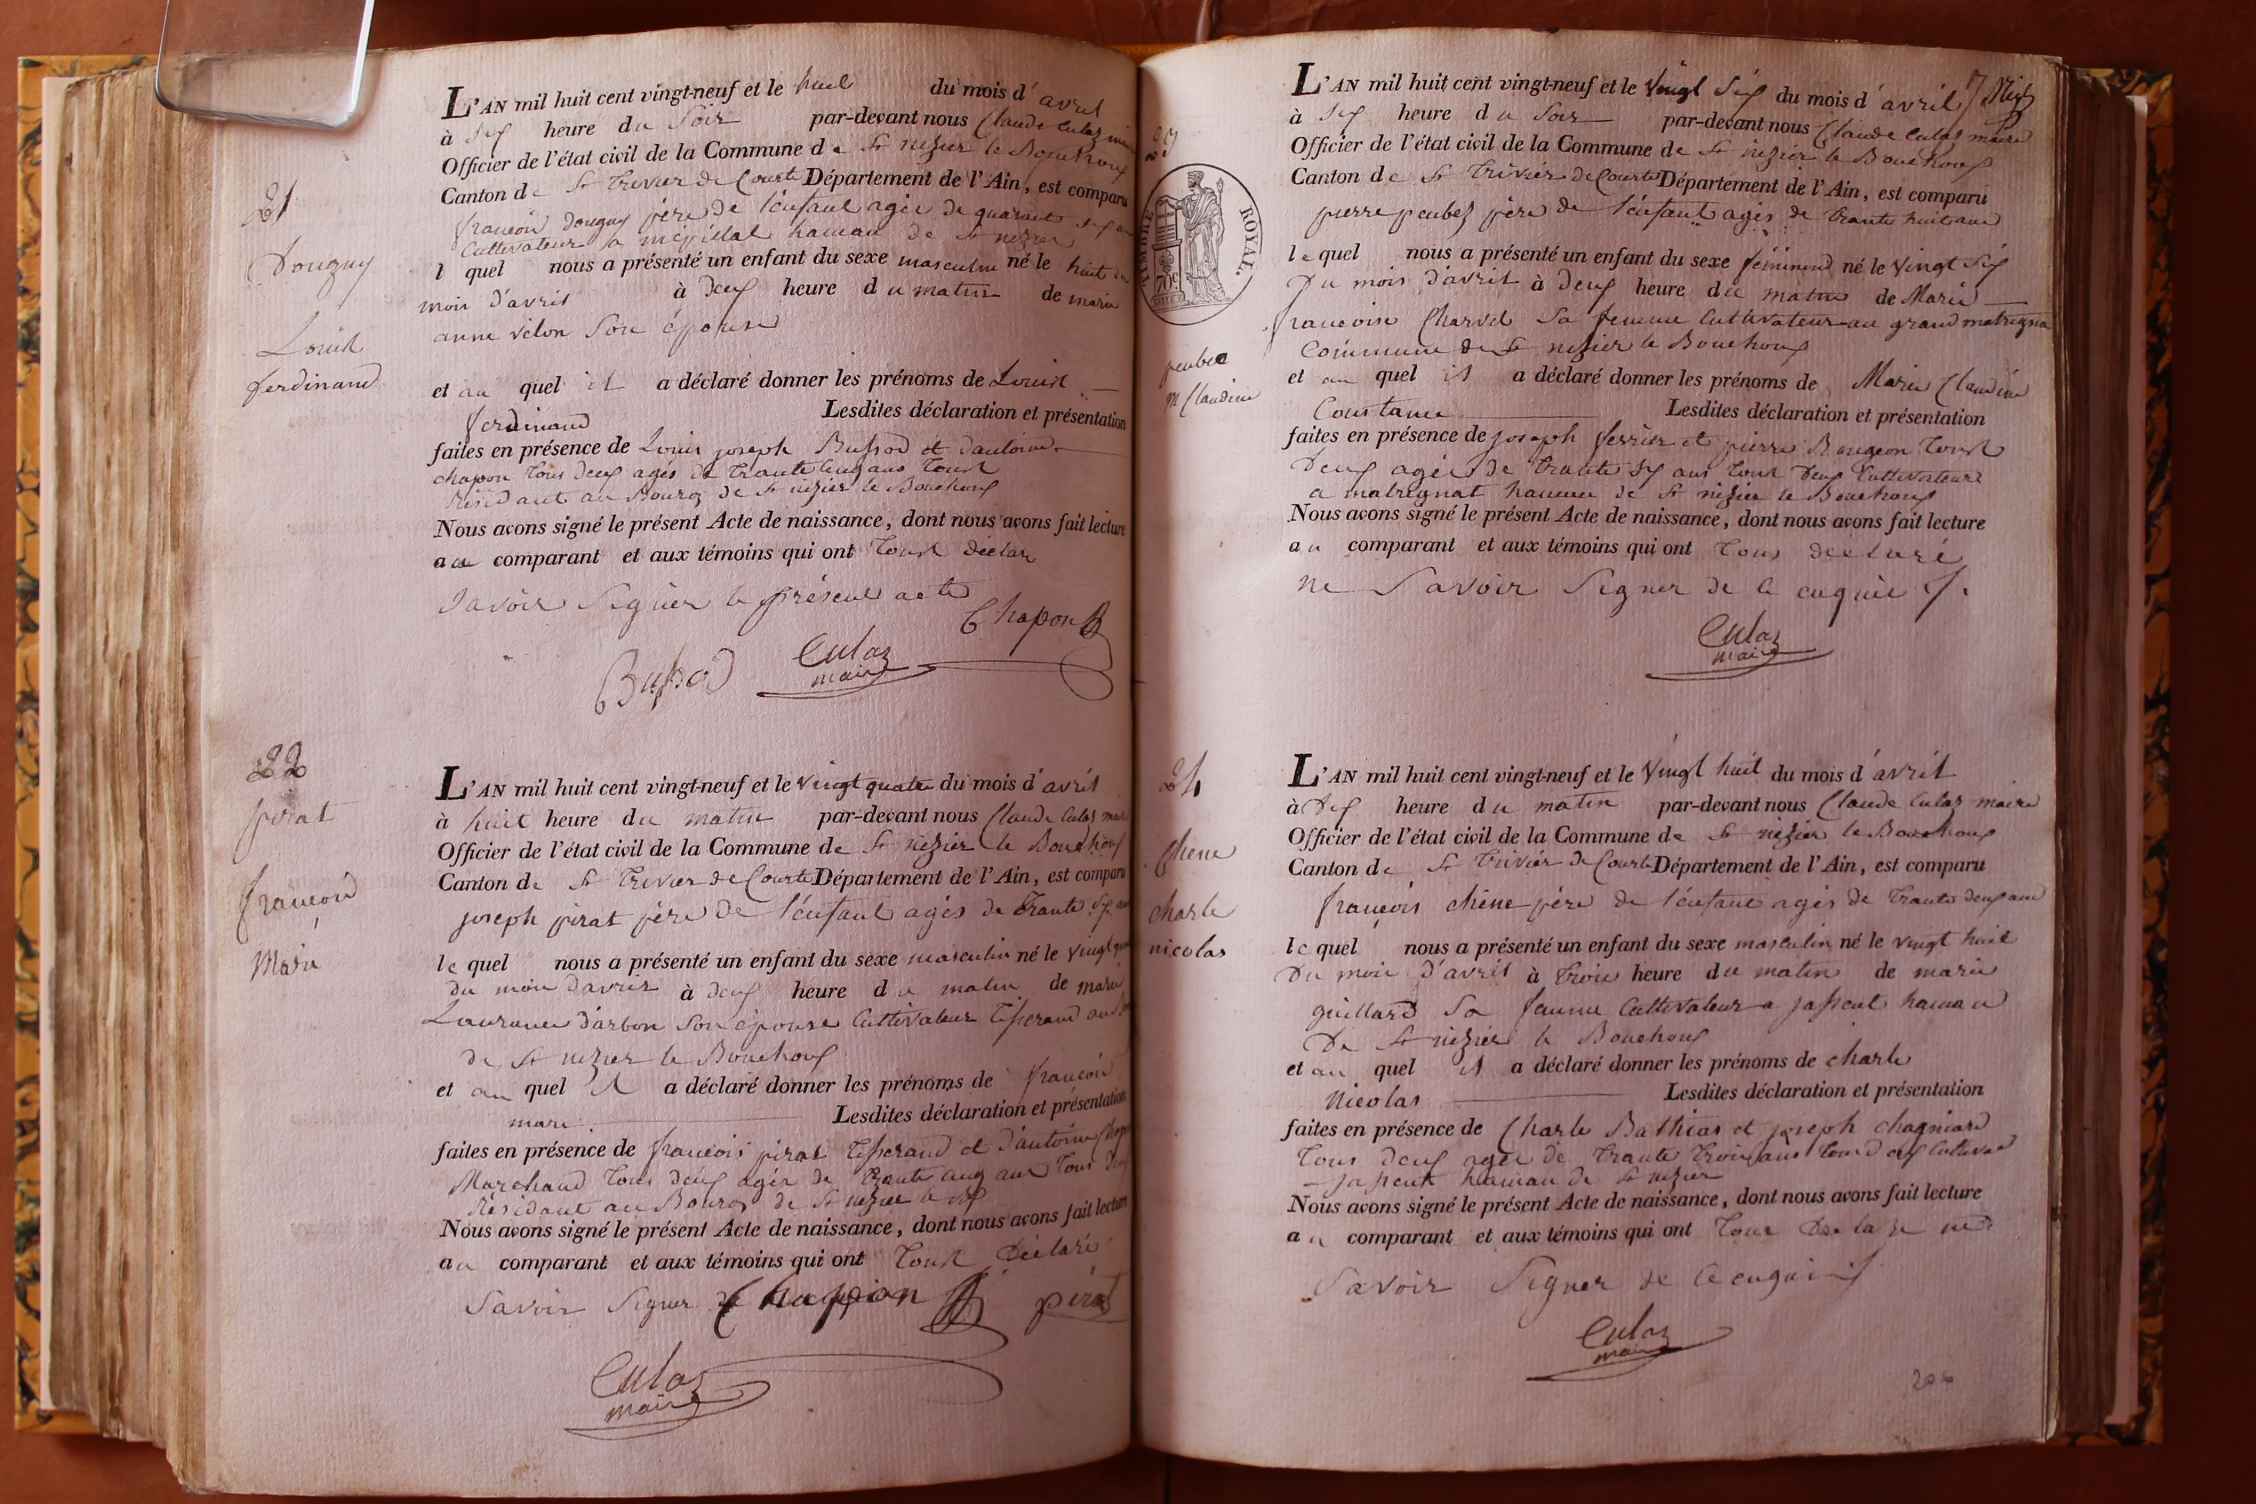 21
Douguy
Louis
ferdinand
L'AN mil huit cent vingt-neuf et le huit du mois d'avril
à six heure du Soir par-devant nous Claude Culaz
Officier de l'état civil de la Commune de St nizier le Bouchoux
Canton de St Trivier de Courte Département de l'Ain, est comparu
françois douguy père de l'enfant agée de quarante
Cultivateur a hamau de St nizier
l quel nous a présenté un enfant du sexe masculin né le huit
mois d'avril à deux heure du matin de marie
anne vélon Son épouse
et au quel il a déclaré donner les prénoms de Louis
ferdinand Lesdites déclaration et présentation
faites en présence de Louis joseph Bussod et d'antoine
chapon tous deux agés de trante cinq ans tous
Résidant au Bourg de St nizier le Bouchoux
Nous avons signé le présent Acte de naissance, dont nous avons fait lecture
au comparant et aux témoins qui ont tous déclaré
Savoir Signer le présent acte
Chapon
Bussod Culaz
maire
22
pirat
françois
Marie
L'AN mil huit cent vingt-neuf et le vingt quatre du mois d'avril
à huit heure du matin par-devant nous Claude Culaz maire
Officier de l'état civil de la Commune de St nizier le Bouchoux
Canton de St Trivier de Courte Département de l'Ain, est comparu
joseph pirat père de l'enfant agés de trante
le quel nous a présenté un enfant du sexe masculin né le vingt
du mois d'avril à deux heure du matin de marie
Laurance d'arbon Son épouse Cultivateur Tisserand au
de St nizier le Bouchoux
et au quel il a déclaré donner les prénoms de françois
mari Lesdites déclaration et présentation
faites en présence de françois pirat Tisserand et d'antoine
Marchand tous deux agés de trante cinq ans tous
Résidant au Bourg de St nizier le
Nous avons signé le présent Acte de naissance, dont nous avons fait lecture
au comparant et aux témoins qui ont tous déclaré
Savoir Signer Chappon pirat
Culaz
maire
TIMBRE ROYAL.
peubez
m Claudine
L'AN mil huit cent vingt-neuf et le vingt Six du mois d'avril
à Six heure du Soir par-devant nous Claude Culaz maire
Officier de l'état civil de la Commune de St nizier le Bouchoux
Canton de St Trivier de Courte Département de l'Ain, est comparu
pierre peubez père de l'enfant agés de trante huit ans
le quel nous a présenté un enfant du sexe féminin né le vingt Six
Du mois d'avril à deux heure du matin de Marie
francoise Charvet Sa femme Cultivateur au grand matrigna
Commune de St nizier le Bouchoux
et au quel il a déclaré donner les prénoms de Marie Claudine
Constance Lesdites déclaration et présentation
faites en présence de joseph ferrier et pierre Bougeon tous
Deux agée de trante Six ans tous Deux Cultivateurs
a matrignat hameau de St nizier le Bouchoux
Nous avons signé le présent Acte de naissance, dont nous avons fait lecture
au comparant et aux témoins qui ont tous déclaré
ne Savoir Signer de ce enquis
Culaz
maire
24
Chêne
charle
nicolas
L'AN mil huit cent vingt-neuf et le vingt huit du mois d'avril
à Dix heure du matin par-devant nous Claude Culaz maire
Officier de l'état civil de la Commune de St nizier le Bouchoux
Canton de St Trivier de Courte Département de l'Ain, est comparu
françois chêne père de l'enfant agés de trante deux ans
le quel nous a présenté un enfant du sexe masculin né le vingt huit
Du mois d'avril à trois heure du matin de marie
guillard Sa femme Cultivateur a jasseut hamau
De St nizier le Bouchoux
et au quel il a déclaré donner les prénoms de charle
Nicolas Lesdites déclaration et présentation
faites en présence de Charle Bathias et joseph chagniard
tous deux agée de trante trois ans tous deux Cultivat
jasseut hamau de St nizier
Nous avons signé le présent Acte de naissance, dont nous avons fait lecture
au comparant et aux témoins qui ont tous ne
Savoir Signer de ce enquis
Culaz
maire